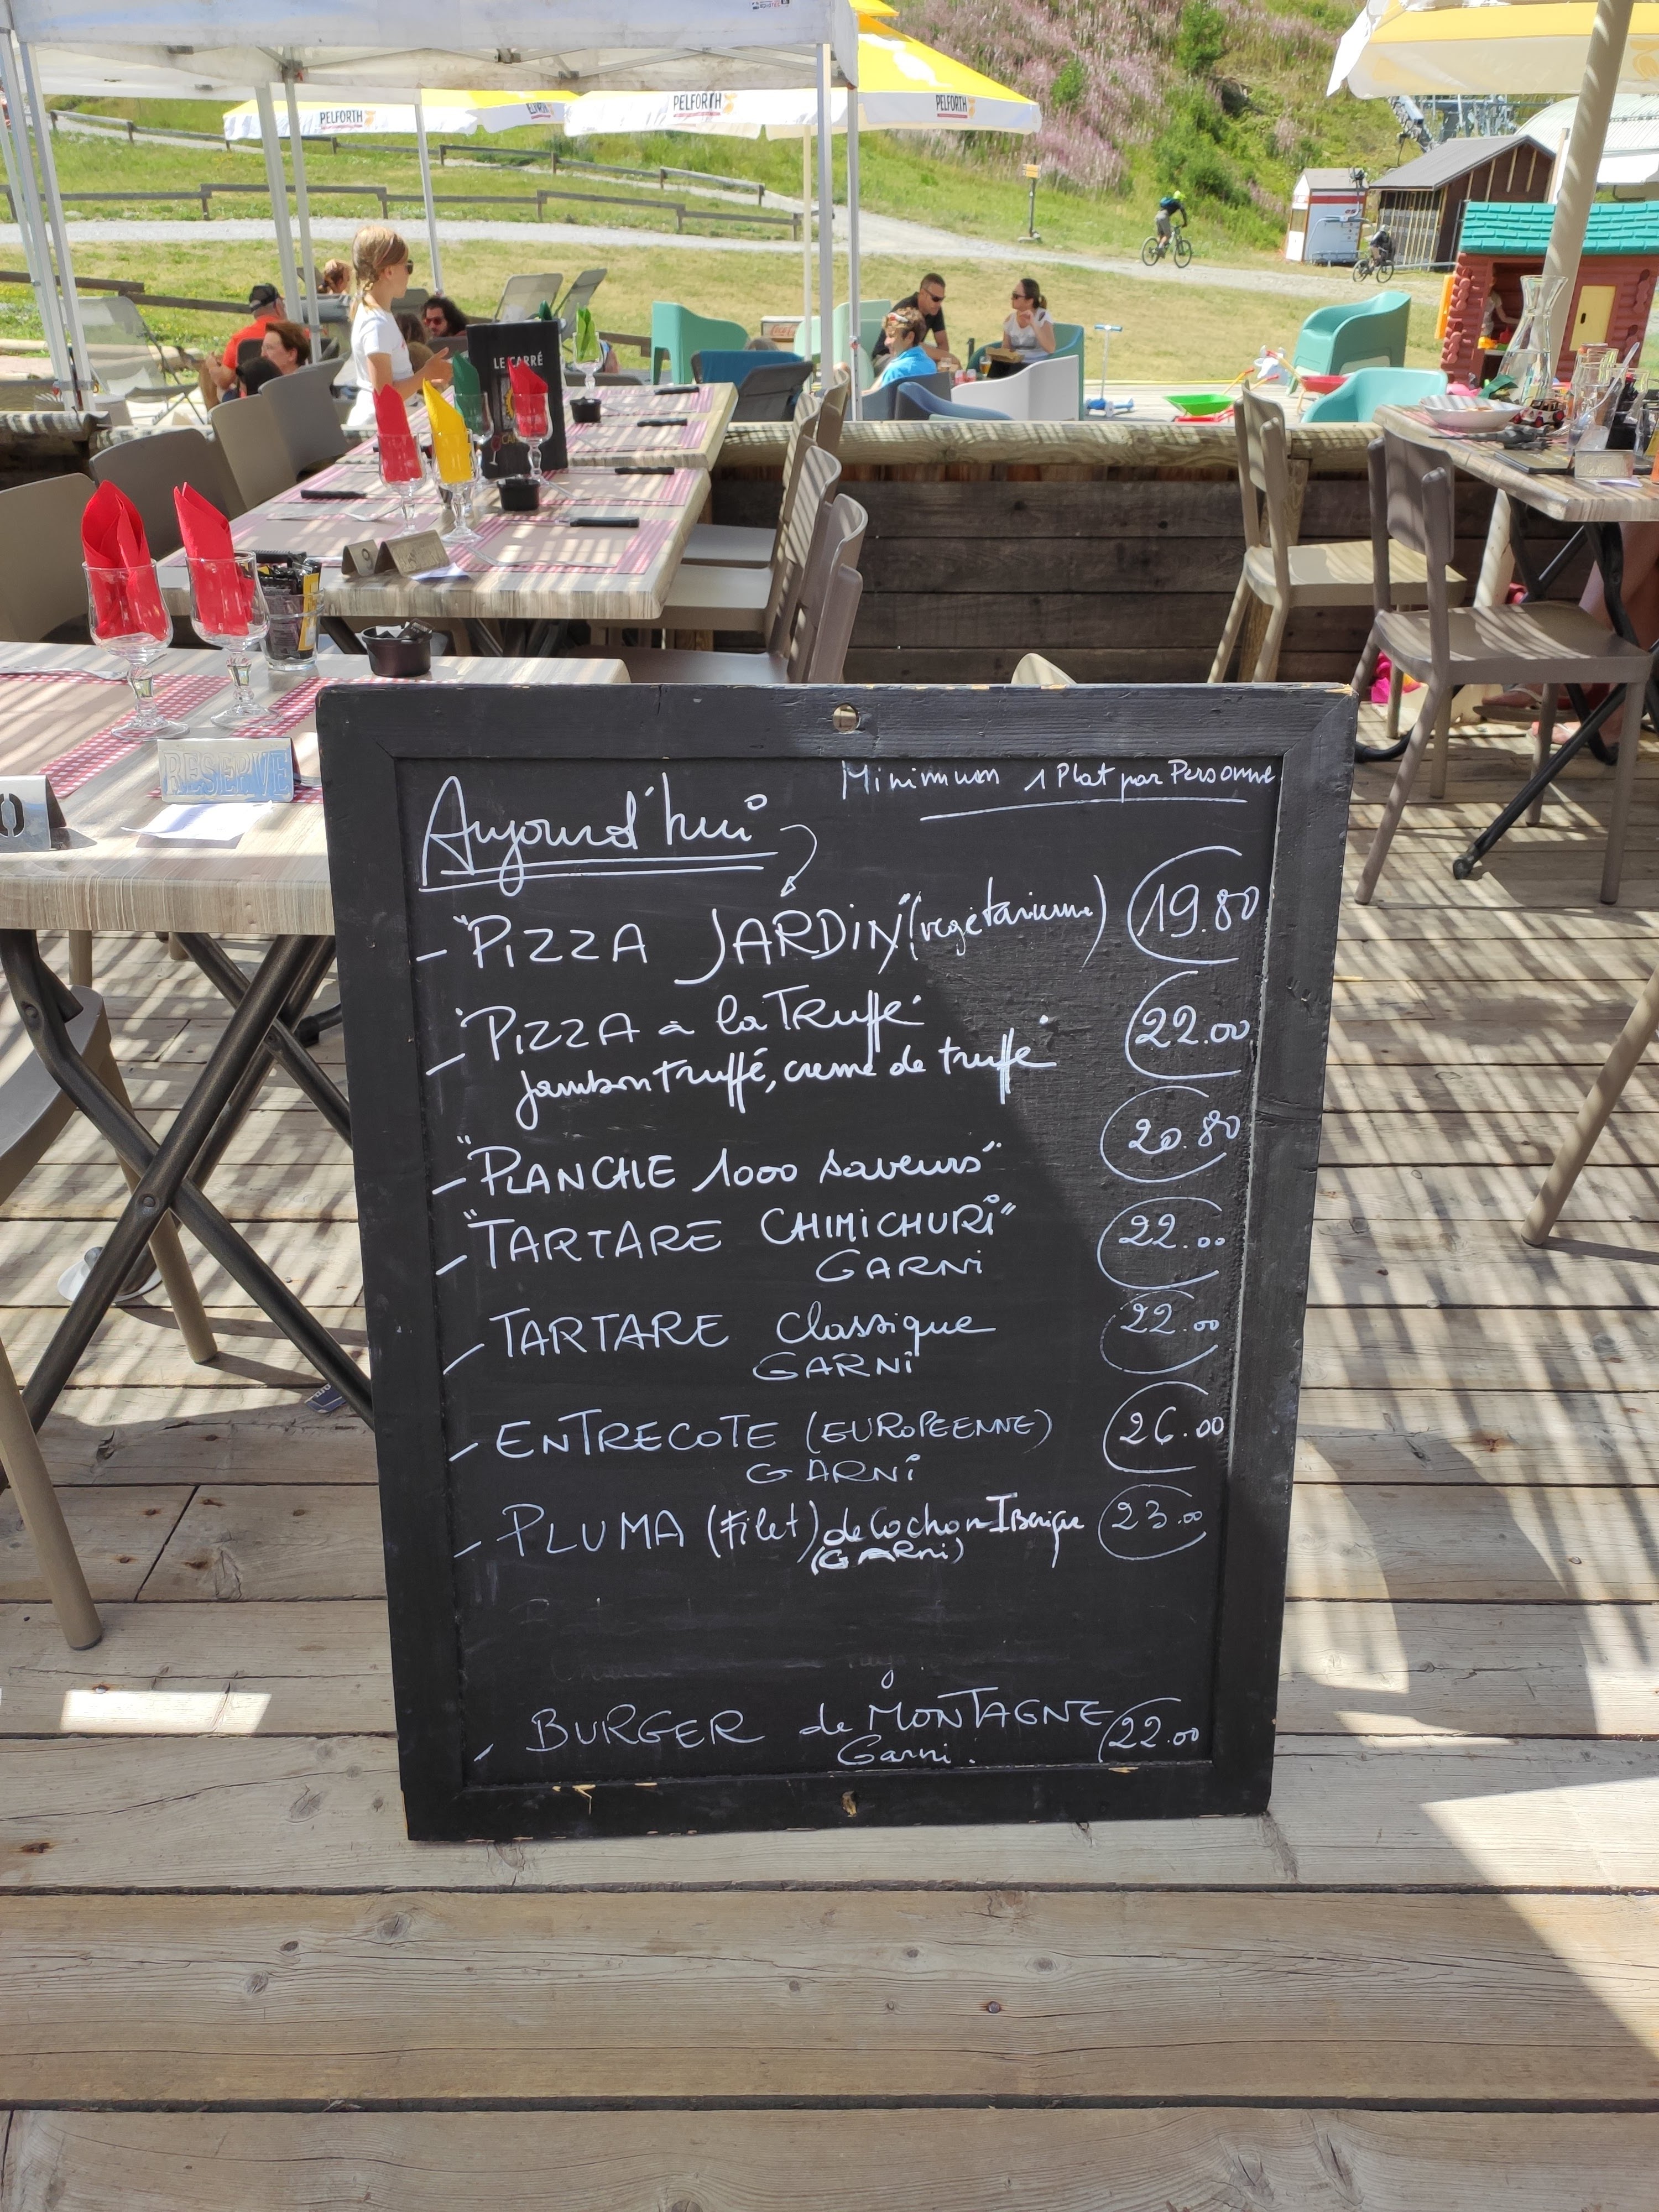 PELFORTH
PELFORTH
PELFORTH
LE CARRÉ
RESERVE
Minimum 1 Plat par Personne
Aujourd'hui
- "PIZZA JARDIN" (végétarienne) 19.80
- "PIZZA à la TRuffe" 22.00
jambon truffé, creme de truffe
- "PLANCHE 1000 saveurs" 20.80
- "TARTARE CHIMICHURI" 22.00
GARNI
- TARTARE Classique 22.00
GARNI
- ENTRECOTE (EUROPEENNE) 26.00
GARNI
- PLUMA (Filet) de Cochon IBerique 23.00
(GARNi)
- BURGER de MONTAGNE 22.00
Garni.